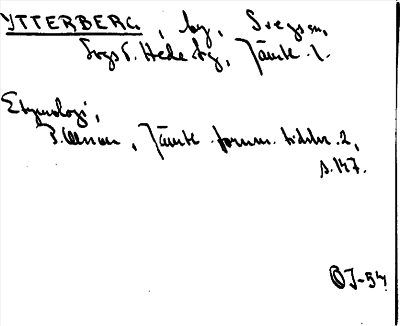 YTTERBERG, by, Svegs sn,
Svegs t. Hede tg, Jämtl. l.
Etymologi,
B. Olsson, Jämtl. fornm. tidskr. 2,
s. 147.
OJ-54